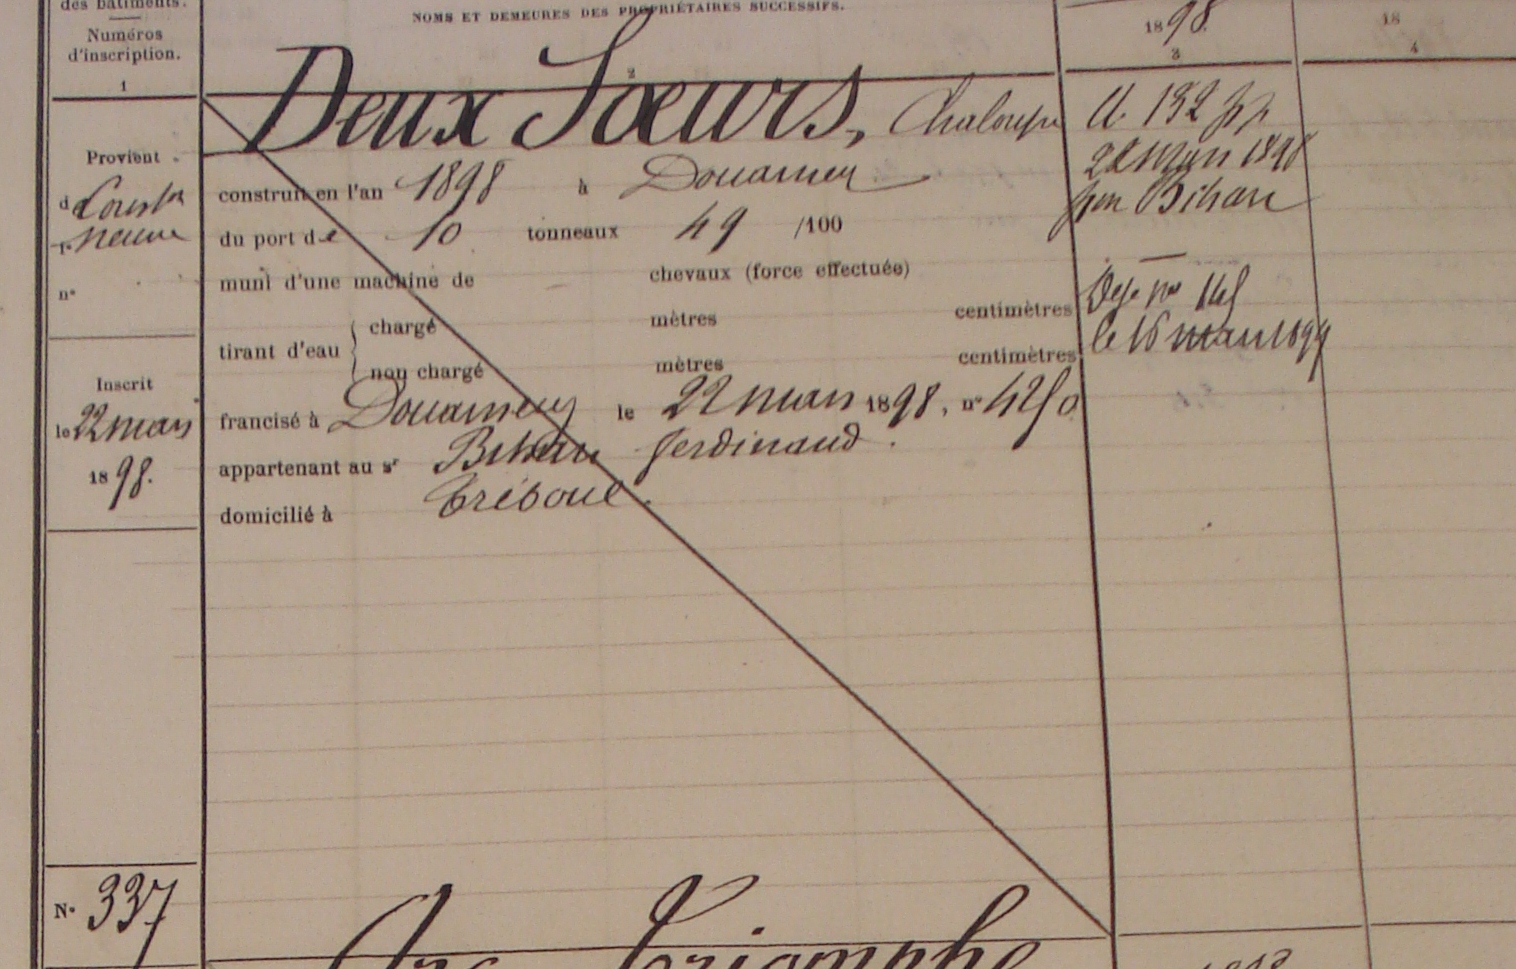 des bâtiments.
Numéros
d'inscription.
1
NOMS ET DEMEURES DES PROPRIÉTAIRES SUCCESSIFS.
2
1898.
3
18
4
Deux Sœurs, Chaloupe
Provient
d
neuve
n°
construit en l'an 1898 à Douarnen
du port de 10 tonneaux 49 /100
muni d'une machine de chevaux (force effectuée)
tirant d'eau
chargé mètres centimètres
non chargé mètres centimètres
francisé à Douarnenez le 22 mars 1898, n° 4250
appartenant au sr Bihan Ferdinand.
domicilié à Tréboul.
Inscrit
le 22 mars
1898.
A. 132
22 mars 1898
Bihan
le 16 mars 1899
N° 337
Arc Triomphe